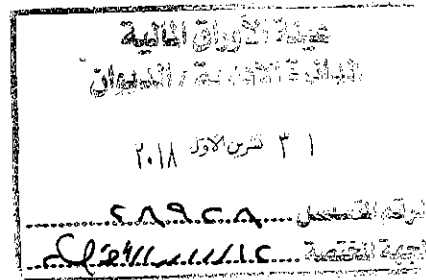 هيئة الأوراق المالية
الدائرة الإدارية / الديوان
٣١ تشرين الاول ٢٠١٨
الرقم المتسلسل
الجهة المختصة